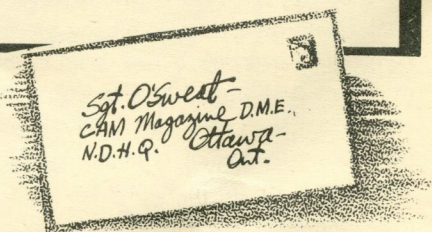 Sgt. O'Sweat -
CAM Magazine D.M.E.,
N.D.H.Q. Ottawa -
Ont.